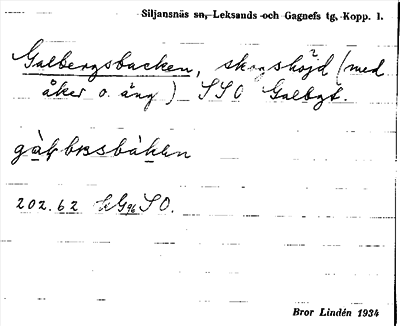 Siljansnäs sn, Leksands och Gagnefs tg, Kopp. l.
Galbergsbacken, skogshöjd (med
åker o. äng) SSO Galbgt.
202.62 SO.
Bror Lindén 1934